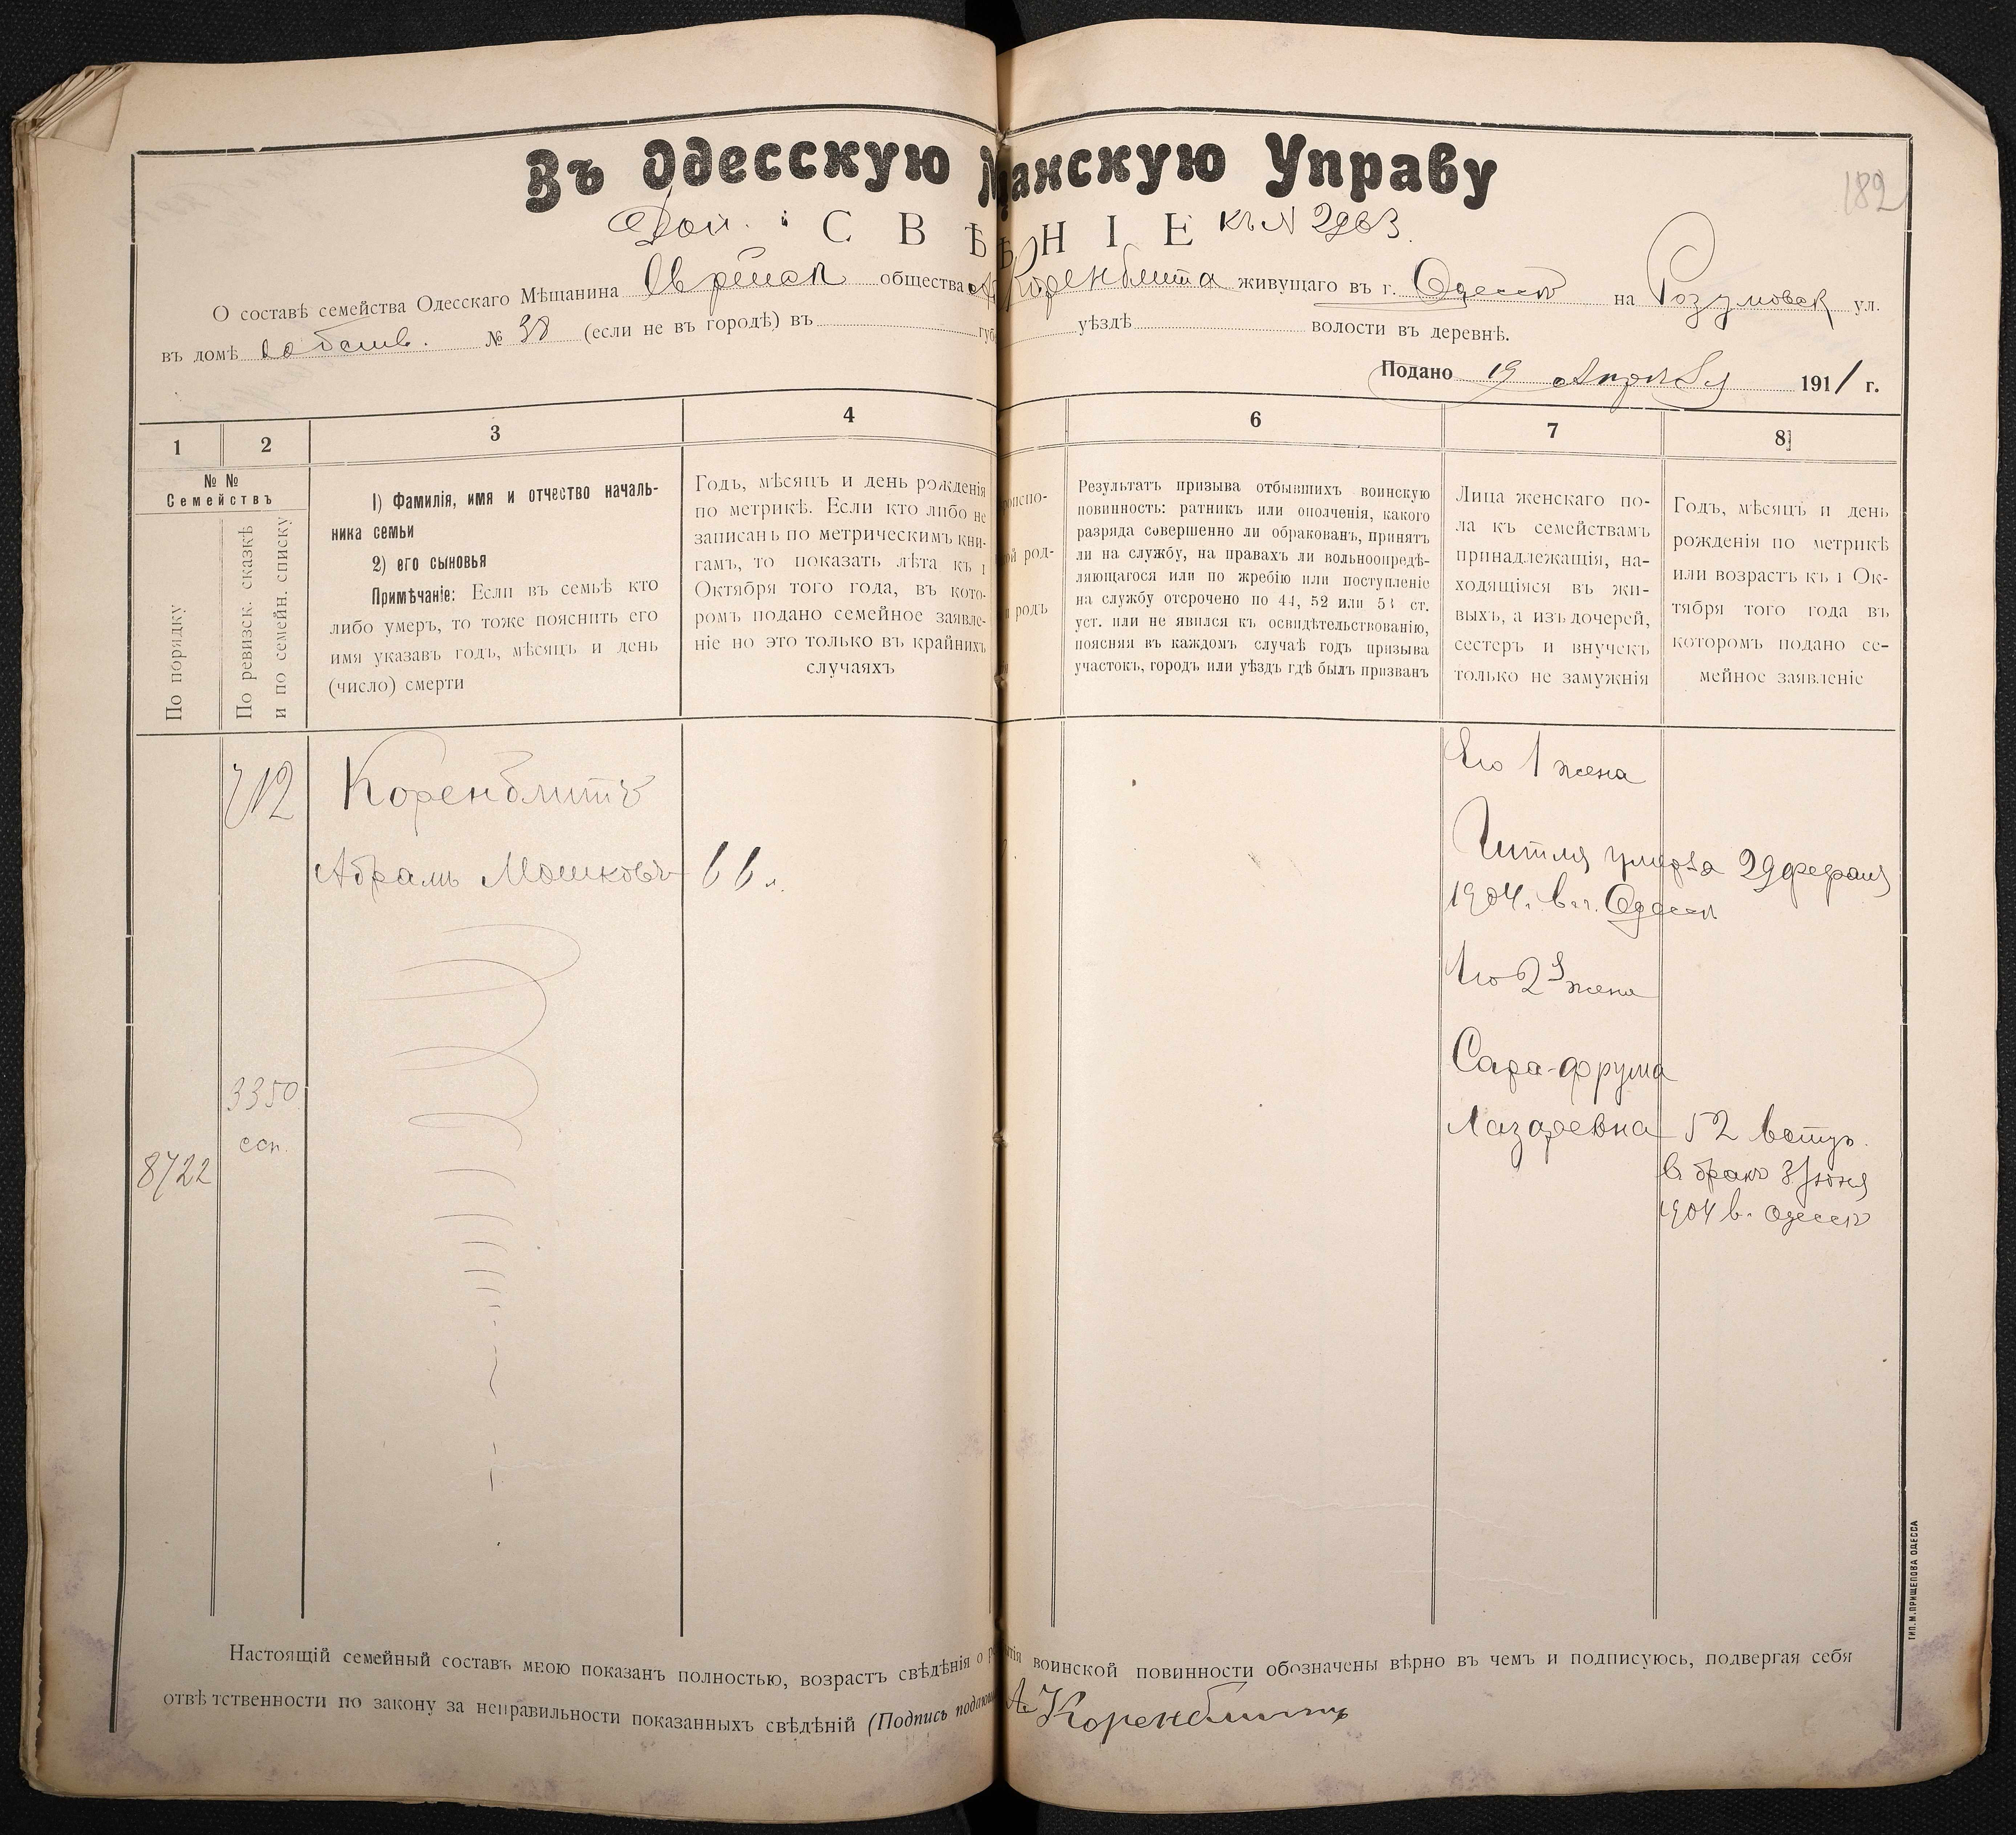 Въ Одесскую М щанскую Управу
182
Доп. СВѢ НІЕ къ N 2963
О составѣ семейства Одесскаго Мѣщанина Еврейск общества А. Коренблита живущаго въ г. Одессѣ на Розумовск ул.
въ домѣ собств. № 38 (если не въ городѣ) въ губ уѣздѣ волости въ деревнѣ.
Подано 19 Апрѣля 1911 г.
1 2 3 4 6 7 8
№ №
Семействъ
По порядку
По ревизск. сказкѣ
и по семейн. списку
1) Фамилія, имя и отчество началь-
ника семьи
2) его сыновья
Примѣчаніе: Если въ семьѣ кто
либо умеръ, то тоже пояснить его
имя указавъ годъ, мѣсяцъ и день
(число) смерти
Годъ, мѣсяцъ и день рожденія
по метрикѣ. Если кто либо не
записанъ по метрическимъ кни-
гамъ, то показать лѣта къ 1
Октября того года, въ кото-
ромъ подано семейное заявле-
ніе но это только въ крайнихъ
случаяхъ
род-
родъ
Результатъ призыва отбывшихъ воинскую
повинность: ратникъ или ополченія, какого
разряда совершенно ли обракованъ, принятъ
ли на службу, на правахъ ли вольноопредѣ-
ляющагося или по жребію или поступленіе
на службу отсрочено по 44, 52 или 53 ст.
уст. или не явился къ освидѣтельствованію,
поясняя въ каждомъ случаѣ годъ призыва
участокъ, городъ или уѣздъ гдѣ былъ призванъ
Лица женскаго по-
ла къ семействамъ
принадлежащія, на-
ходящіяся въ жи-
выхъ, а изъ дочерей,
сестеръ и внучекъ
только не замужнія
Годъ, мѣсяцъ и день
рожденія по метрикѣ
или возрастъ къ 1 Ок-
тября того года въ
которомъ подано се-
мейное заявленіе
712
Коренблитъ
Абрамъ Мошковъ 66 л.
3350
есп.
8722
Его 1 жена
Гитля умерла 29 февраля
1904. в г. Одессѣ
Его 2я жена
Сара-фрума
Лазаревна 52 вступ.
въ бракъ 3 Іюня
1904 в. Одессѣ
Настоящій семейный составъ мною показанъ полностью, возрастъ свѣдѣнія о воинской повинности обозначены вѣрно въ чемъ и подписуюсь, подвергая себя
отвѣтственности по закону за неправильности показанныхъ свѣдѣній (Подпись А Коренблитъ
ТИП. М. ПРИЩЕПОВА ОДЕССА